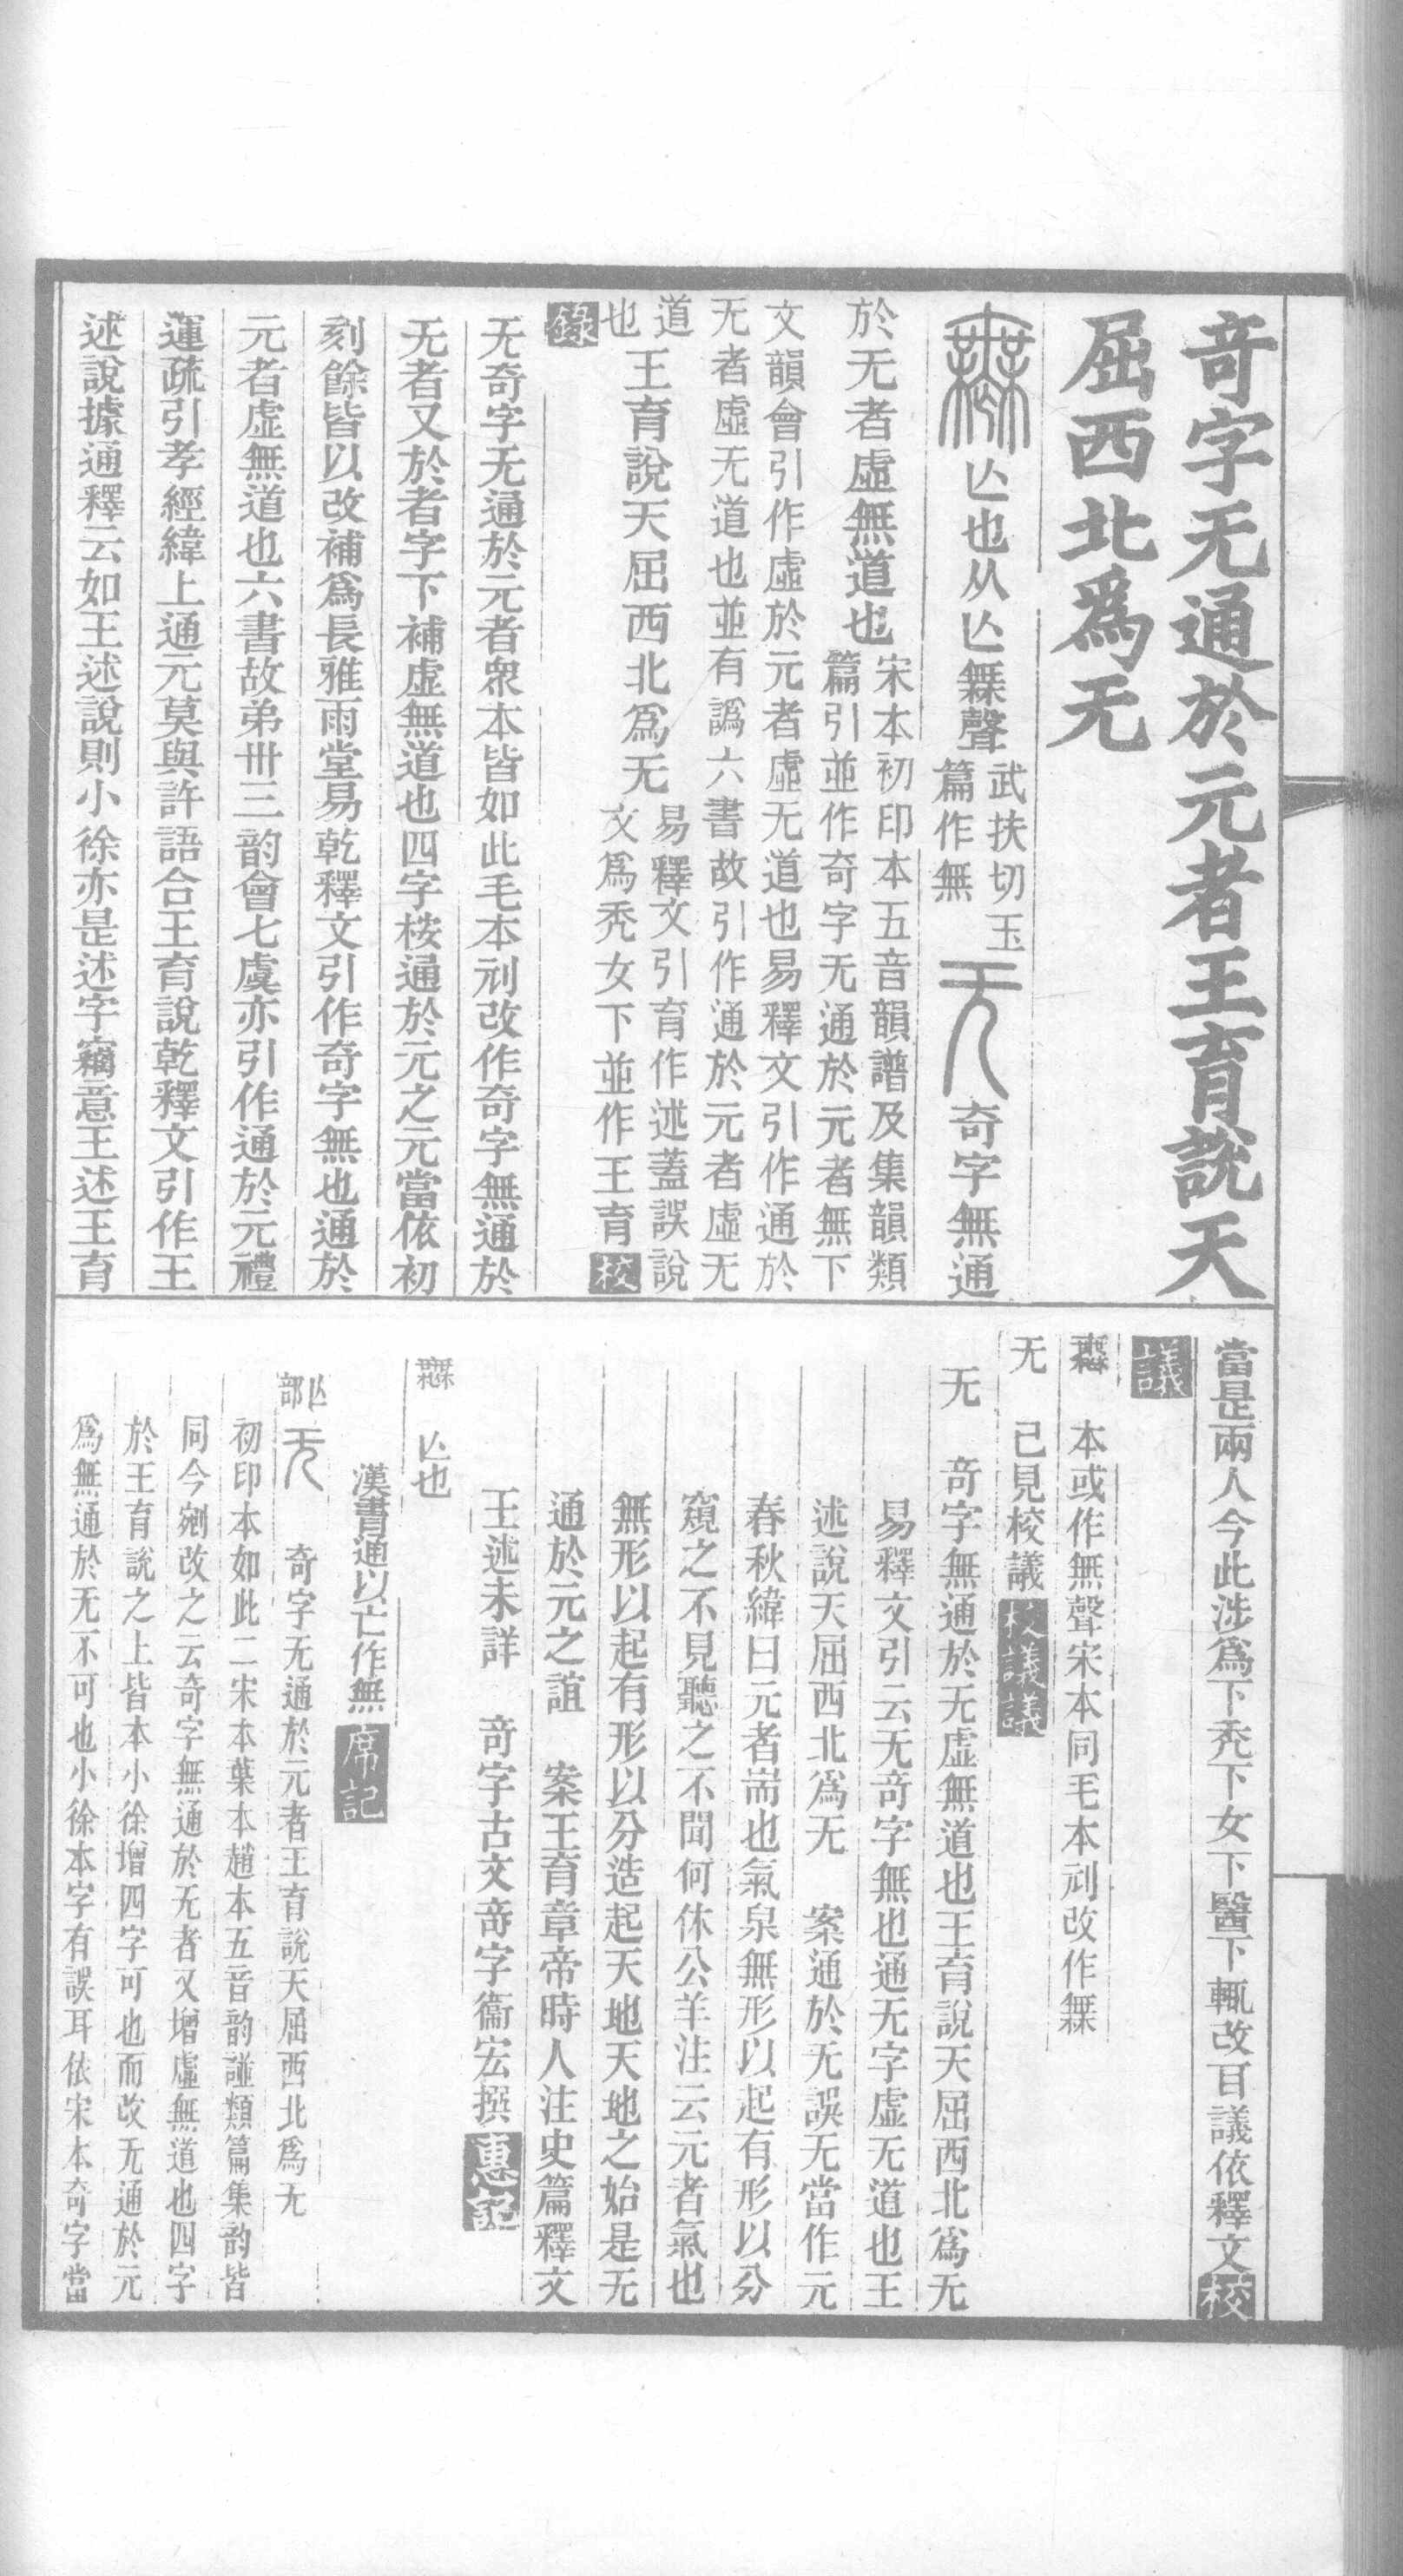 奇字无通於元者王育說天
屈西北爲无
𣠮亾也从亾無聲武扶切玉篇作無 无奇字無通
於无者虛無道也宋本初印本五音韻譜及集韻類
篇引並作奇字无通於元者無下
文韻會引作虛於元者虛无道也易釋文引作通於
无者虛无道也並有譌六書故引作通於元者虛无
道也王育說天屈西北爲无易釋文引育作述蓋誤說
文爲禿女下並作王育校
錄
无奇字无通於元者衆本皆如此毛本刓改作奇字無通於
无者又於者字下補虛無道也四字桉通於元之元當依初
刻餘皆以改補爲長雅雨堂易乾釋文引作奇字無也通於
元者虛無道也六書故弟卅三韵會七虞亦引作通於元禮
運疏引孝經緯上通元莫與許語合王育說乾釋文引作王
述說據通釋云如王述說則小徐亦是述字竊意王述王育
當是兩人今此涉爲下禿下女下醫下輒改目議依釋文校
議
𣠮 本或作無聲宋本同毛本刓改作橆
无 已見校議校議議
无 奇字無通於无虛無道也王育說天屈西北爲无
易釋文引云无奇字無也通无字虛无道也王
述說天屈西北爲无 案通於无誤无當作元
春秋緯曰元者耑也氣泉無形以起有形以分
窺之不見聽之不聞何休公羊注云元者氣也
無形以起有形以分造起天地天地之始是无
通於元之誼 案王育章帝時人注史篇釋文
王述未詳 奇字古文奇字衞宏撰惠記
𣠮 亾也
漢書通以亡作無席記
亾部无 奇字无通於元者王育說天屈西北爲无
初印本如此二宋本葉本趙本五音韵譜類篇集韵皆
同今剜改之云奇字無通於无者又增虛無道也四字
於王育說之上皆本小徐增四字可也而改无通於元
爲無通於无不可也小徐本字有誤耳依宋本奇字當